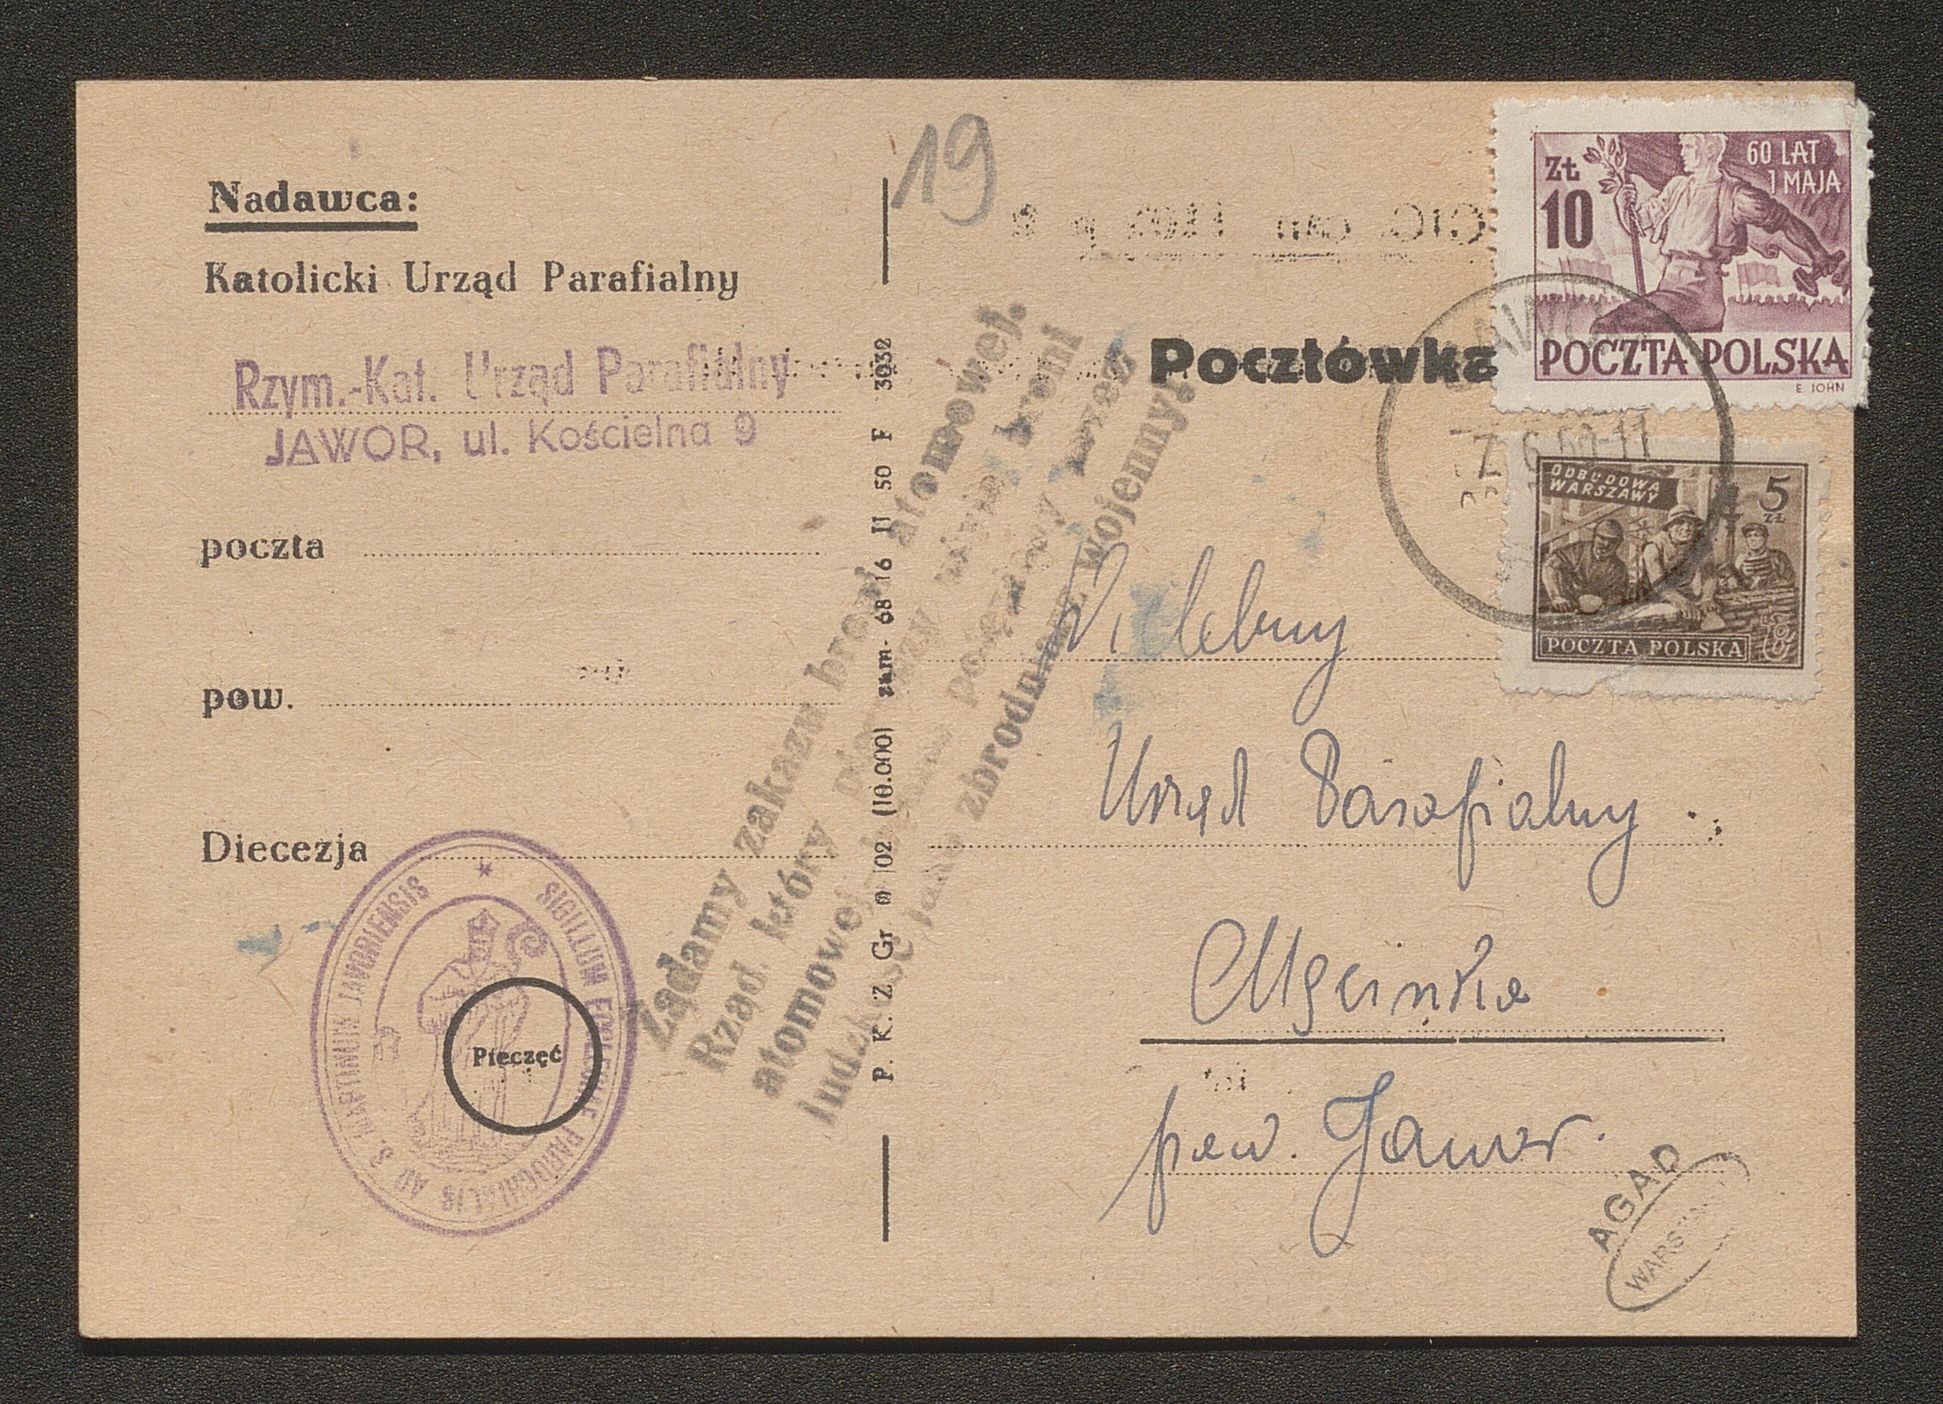 19
Nadawca:
Katolicki Urząd Parafialny
Rzym.-Kat. Urząd Parafialny
JAWOR, ul. Kościelna 9
poczta
pow.
Diecezja
SIGILLUM ECCLESIAE PAROCHIALIS AD S. MARTINUM JAVORIENSIS
Pieczęć
P. K. Z. Gr 102 (10.000) zam- 68 16 II 50 F 3032
Żądamy zakazu broni atomowej.
Rząd, który pierwszy użyje broni
atomowej, potępiony przez
ludzkość jako zbrodniarz wojenny.
Pocztówka
60 LAT
1 MAJA
ZŁ
10
POCZTA POLSKA
E. JOHN
JAWOR
7.6.50-11
ODBUDOWA
WARSZAWY
5
ZŁ
POCZTA POLSKA
Wielebny
Urząd Parafialny
Męcinka
pow. Jawor.
AGAD
WARSZAWA